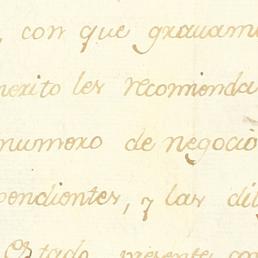 , con que gravam
merito les recomenda
numero de negocio
pendientes, y las di
Estado presente con